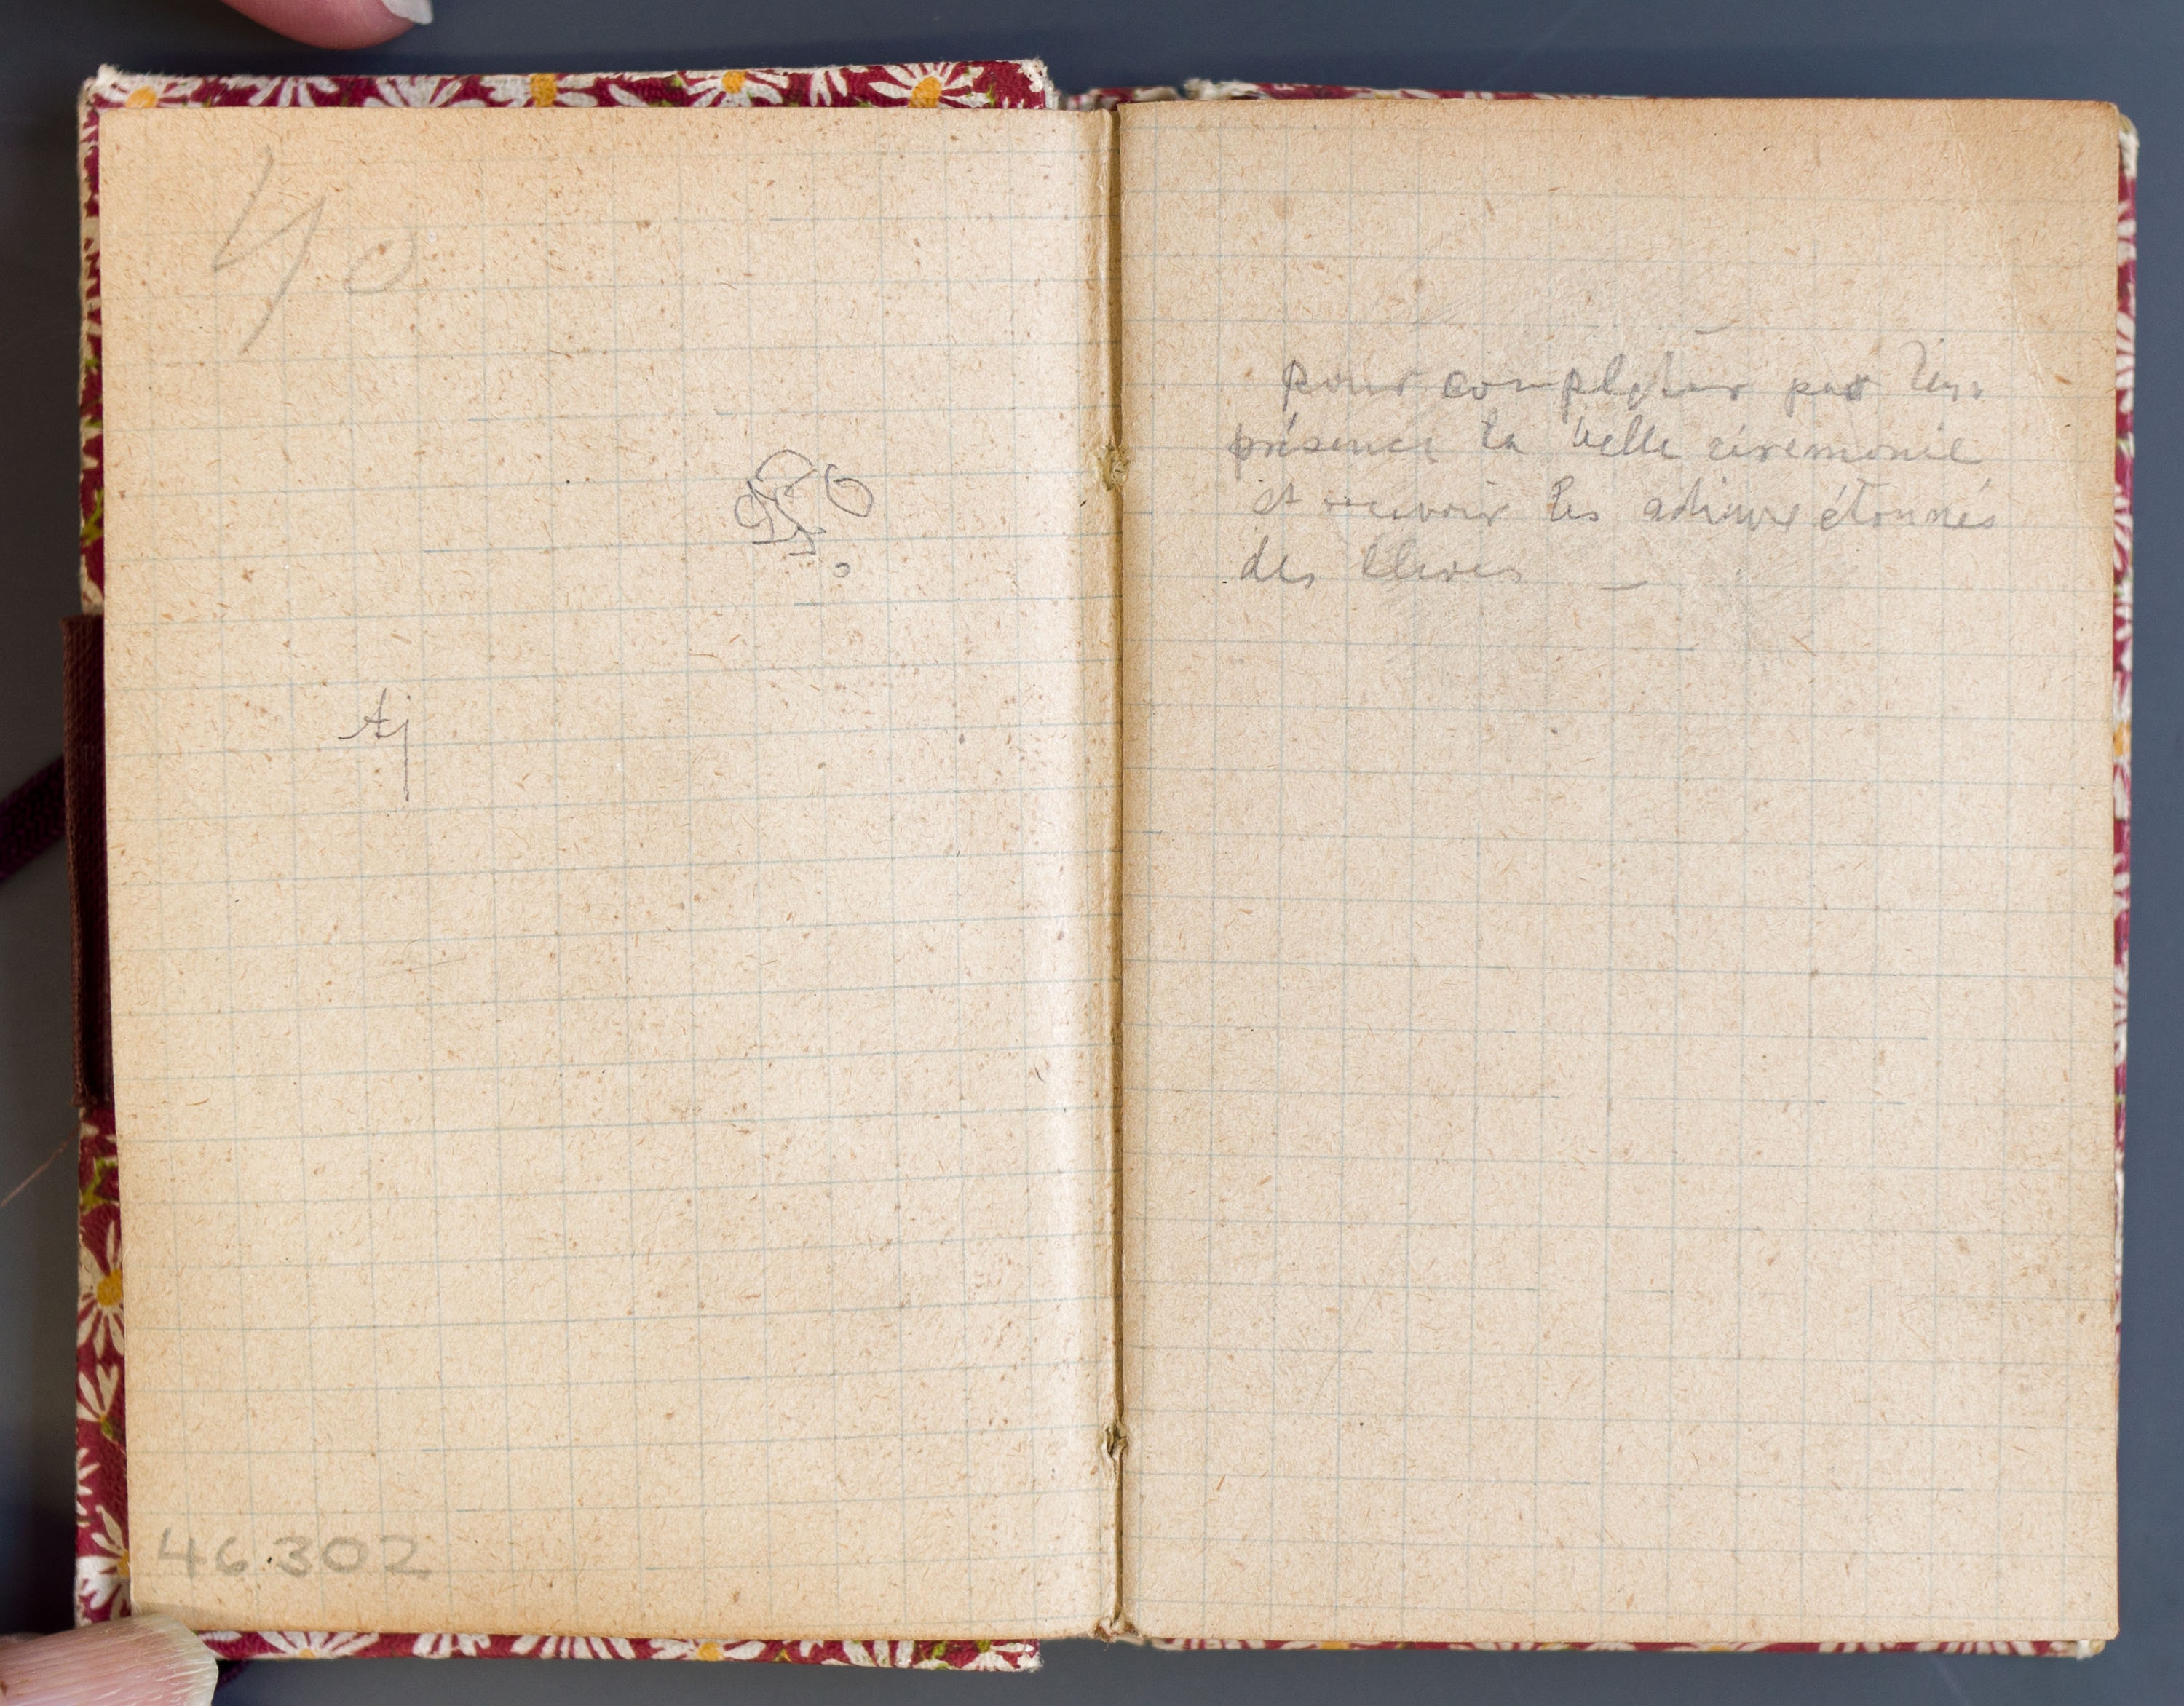 40
Aj
46302
pour compléter par leur
présence la belle cérémonie
et recevoir les adieux étonnés
des élèves —